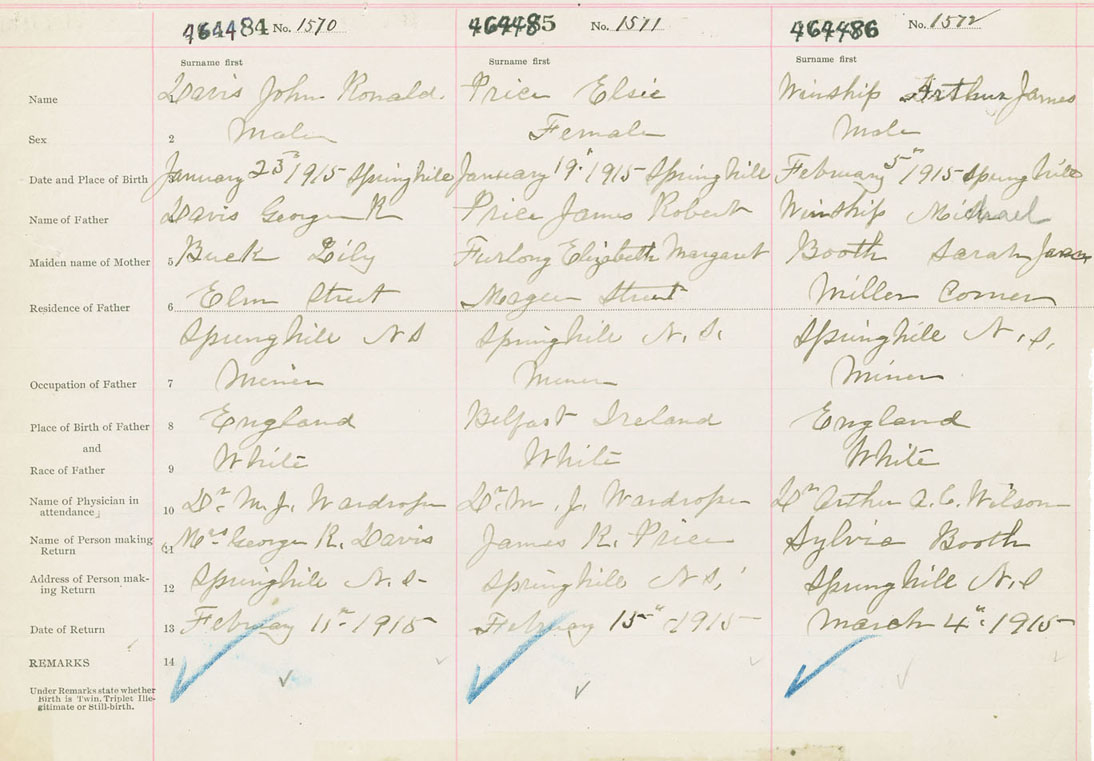 464484 No. 1570 464485 No. 1571 464486 No. 1572
Surname first Surname first Surname first
Name 1 Davis John Ronald. Price Elsie Winship Arthur James
Sex 2 Male Female Male
Date and Place of Birth 3 January 23" 1915 Springhill January 19" 1915 Springhill February 5" 1915 Springhill
Name of Father Davis George R Price James Robert Winship Michael
Maiden name of Mother 5 Buck Lily Furlong Elizabeth Margaret Booth Sarah Jane
Residence of Father 6 Elm Street Street Miller Corner
Springhill N S Springhill N. S. Springhill N. S.
Occupation of Father 7 Miner Miner Miner
Place of Birth of Father 8 England Belfast Ireland England
and
Race of Father 9 White White White
Name of Physician in
attendance 10 Dr. M. J. Wardrope Dr. M. J. Wardrope Dr Arthur A. C. Wilson
Name of Person making
Return 11 Mrs George R. Davis James R. Price Sylvia Booth
Address of Person mak-
ing Return 12 Springhill N. S- Springhill N S. Springhill N. S
Date of Return 13 February 11" 1915 February 15" 1915 March 4" 1915
REMARKS 14
Under Remarks state whether
Birth is Twin, Triplet Ille-
gitimate or Still-birth.